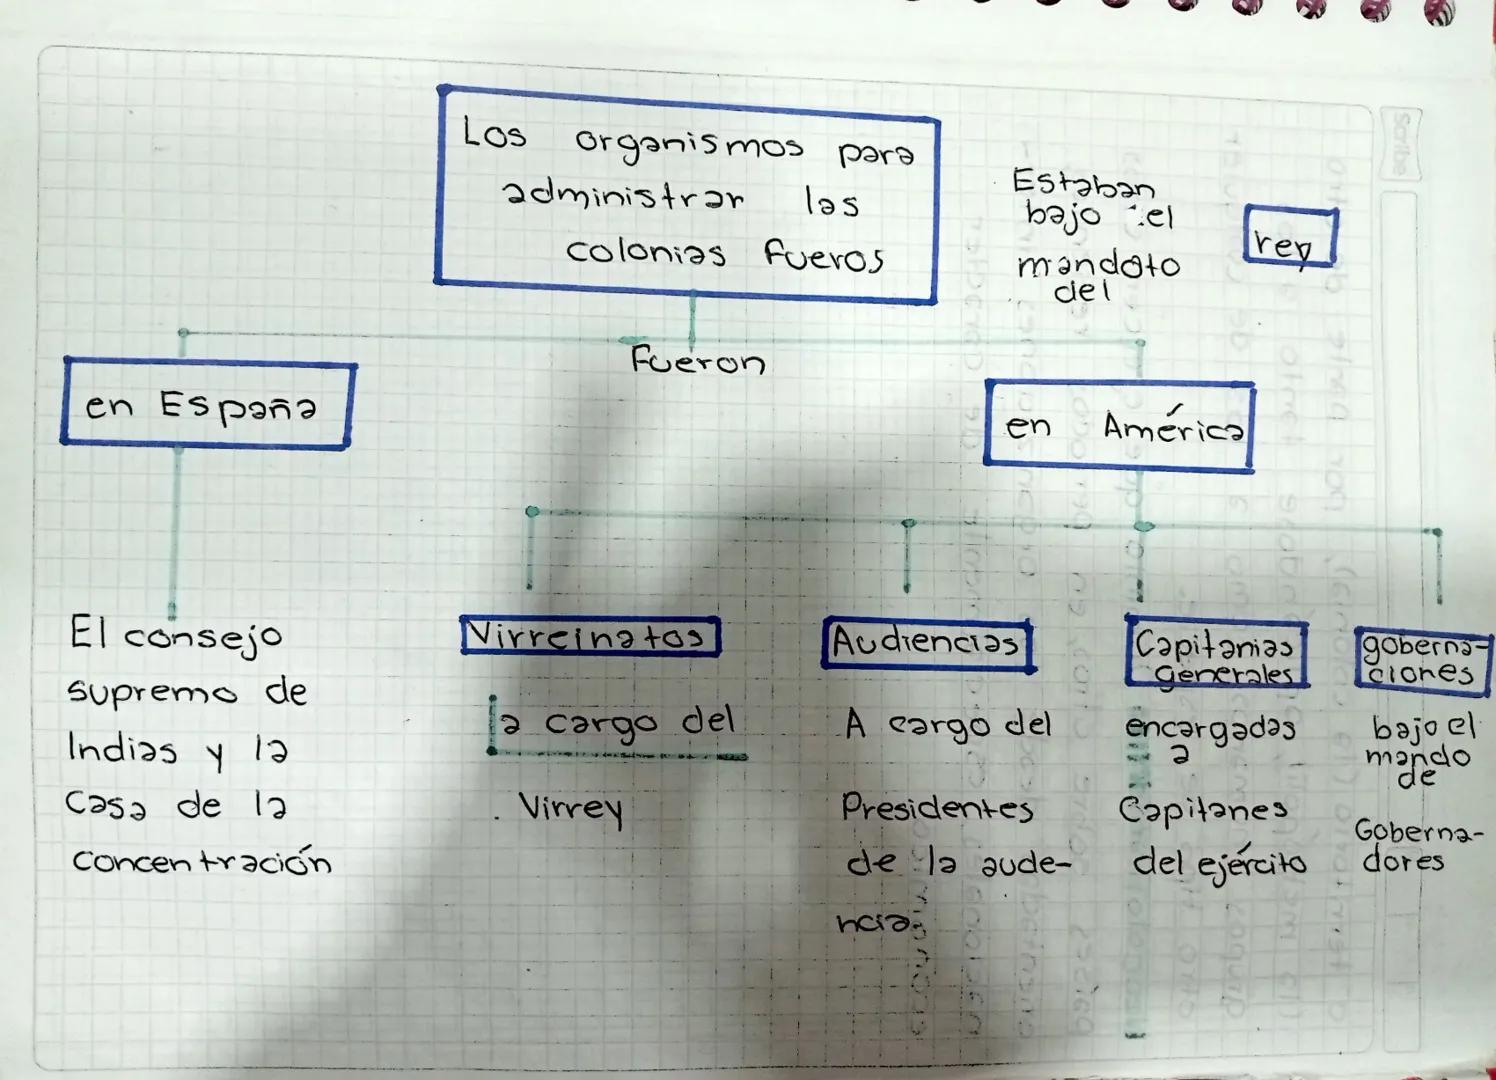 Los organismos para
administrar las
colonias fueros
Estaban
bajo el
mandato
del
rey
Fueron
en España
en América
El consejo
supremo de
Indias y la
Casa de la
concentración
Virreinatos
a cargo del
Virrey
Audiencias
A cargo del
Presidentes
de la aude-
ncia.
Capitanias
generales
encargadas
a
Capitanes
del ejército
goberna-
ciones
bajo el
mando
de
Goberna-
dores
Scribe